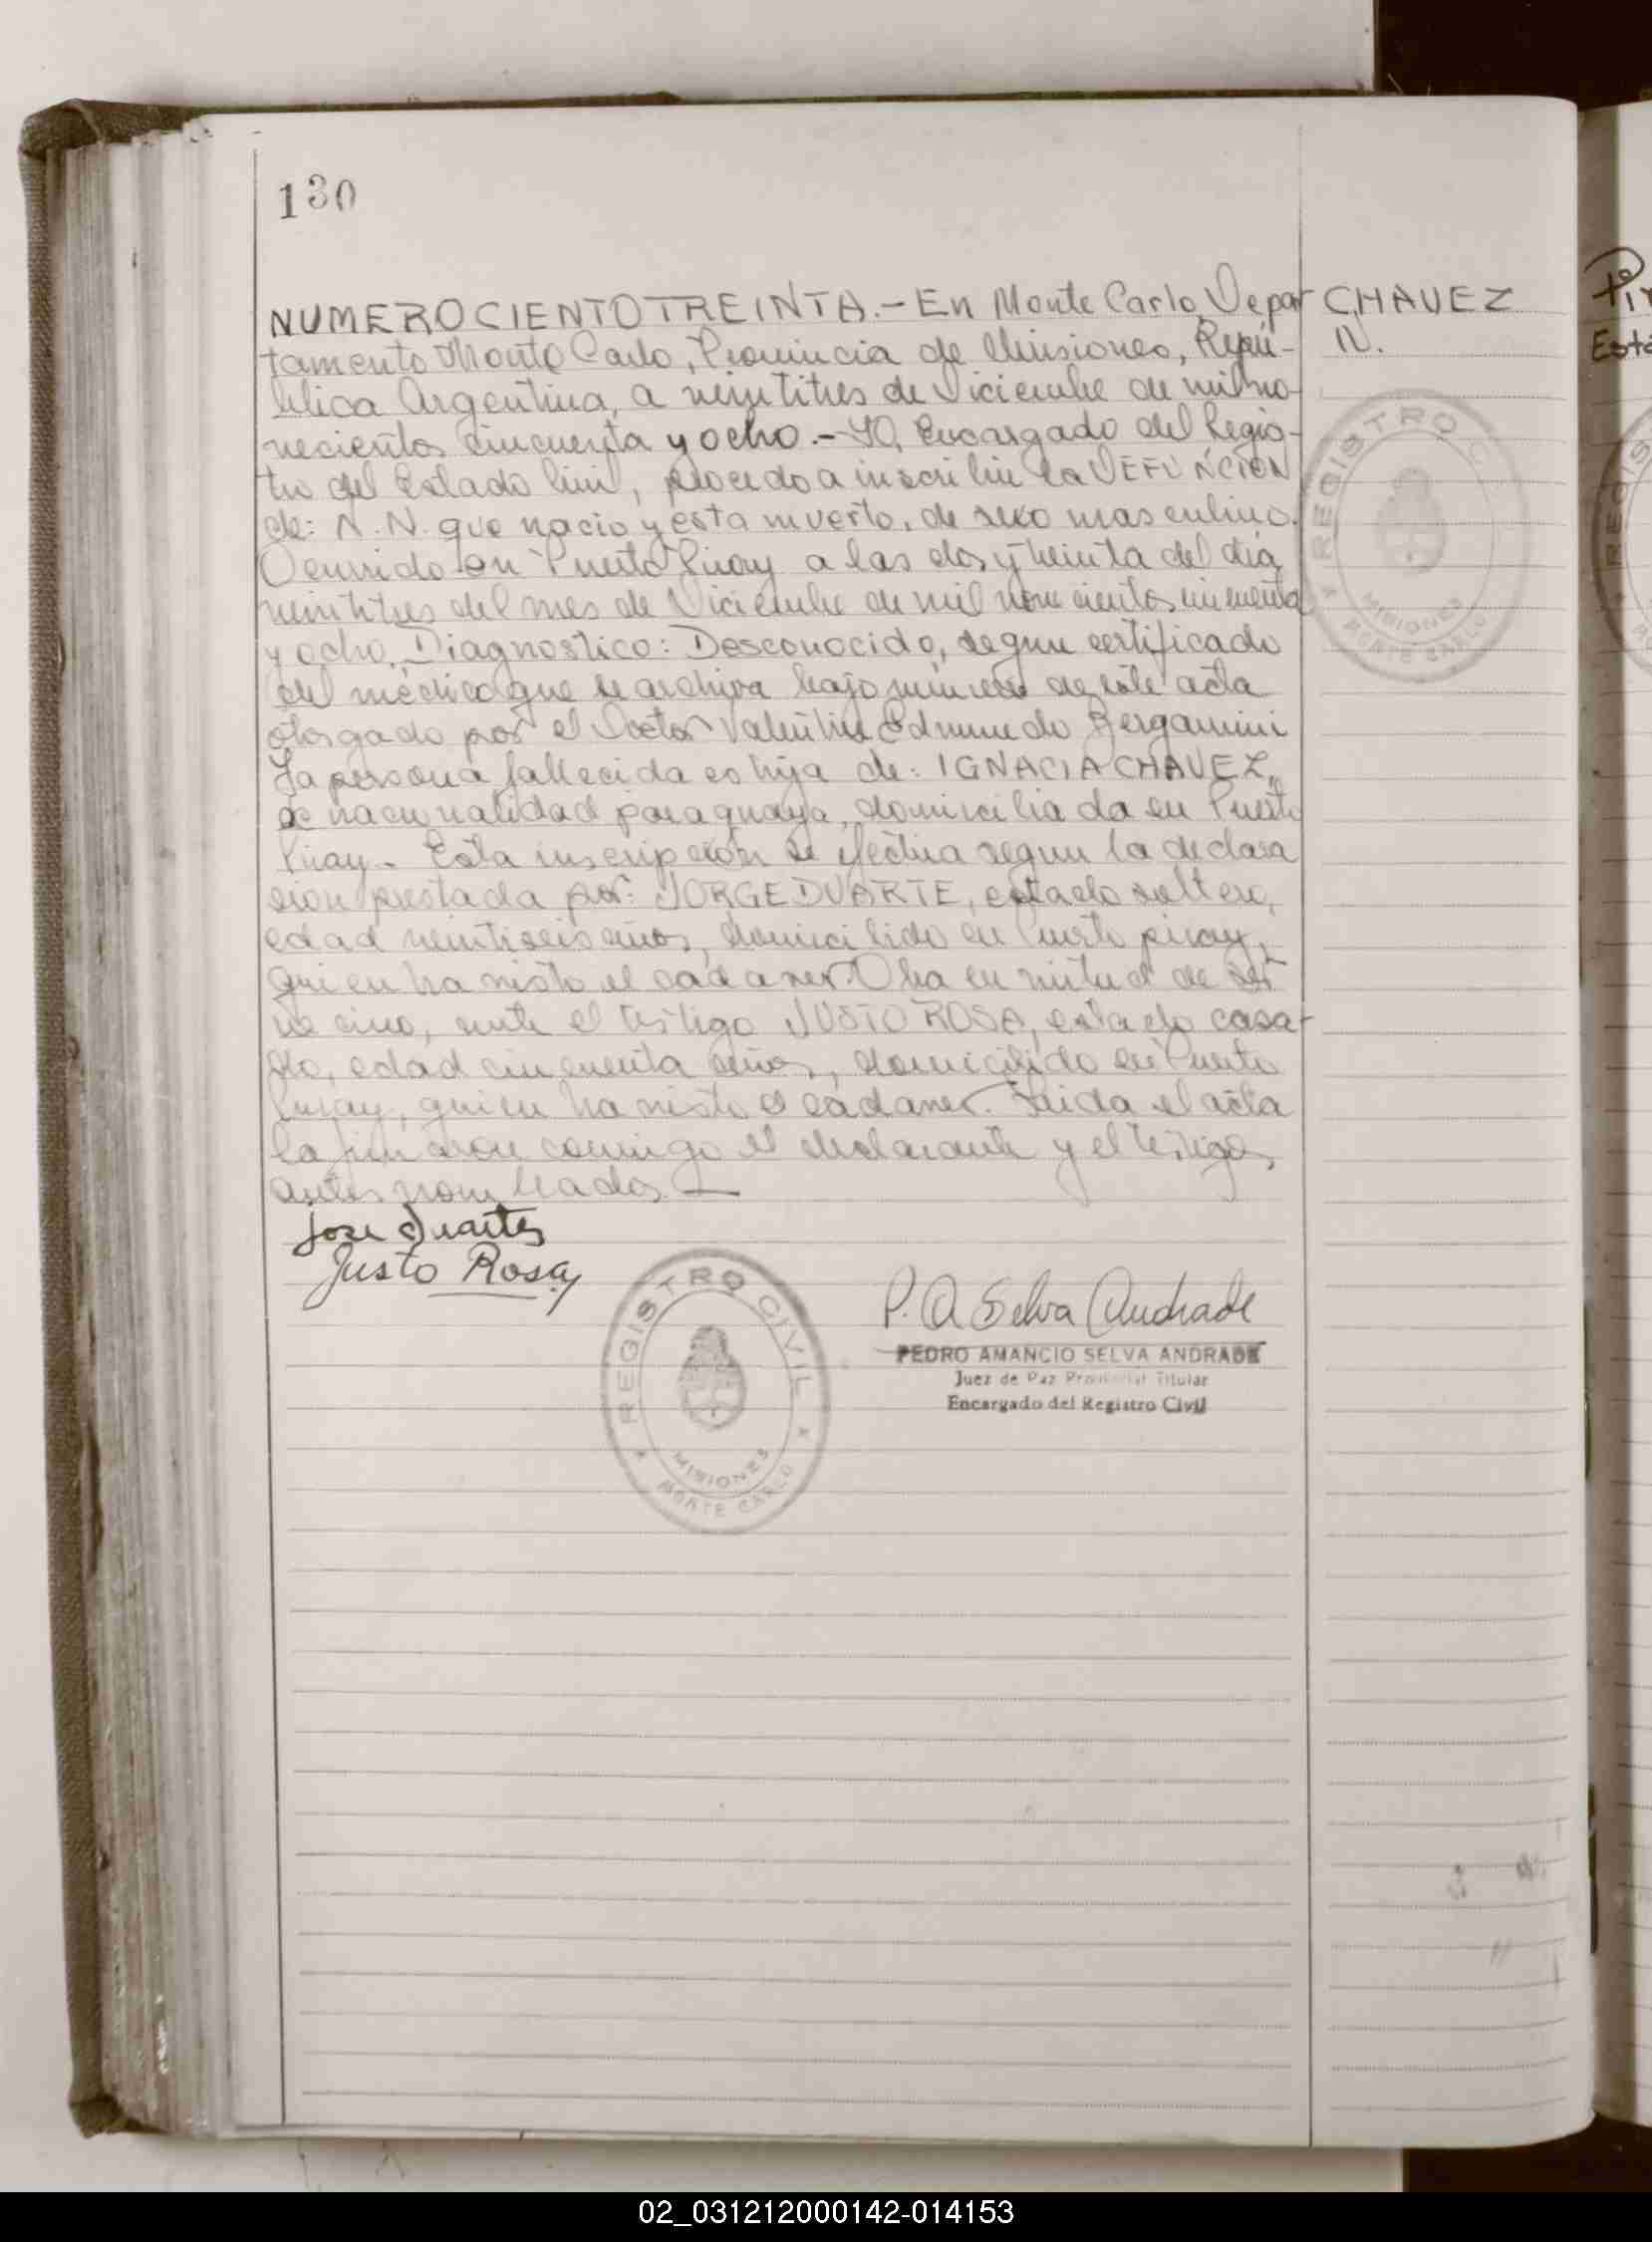 130
NUMERO CIENTO TREINTA.- En Monte Carlo, Depar
tamento Monte Carlo, Provincia de Misiones, Repú-
blica Argentina, a veintitres de Diciembre de mil no-
vecientos cincuenta y ocho.- YO, Encargado del Regis-
tro del Estado Civil, procedo a inscribir la DEFUNCION
de: N.N. que nacio y esta muerto, de sexo masculino.
Ocurrido en Puerto Piray a las dos y treinta del dia
veintitres del mes de Diciembre de mil novecientos cincuenta
y ocho. Diagnostico: Desconocido, segun certificado
del médico que se archiva bajo número de este acta
otorgado por el Doctor Valentin Edmundo Bergamini
La persona fallecida es hija de: IGNACIA CHAVEZ,
de nacionalidad paraguaya, domiciliada en Puerto
Piray.- Esta inscripción se efectua segun la declara
sion prestada por: JORGE DUARTE, estado soltero,
edad veintiseis años, domicilido en Puerto piray,
quien ha visto el cadaver. Obra en virtud de ser
vecino, ante el testigo JUSTO ROSA, estado casa-
do, edad cincuenta años, domicilido en Puerto
Piray, quien ha visto el cadaver. Leida el acta
la firmaron conmigo el declarante y el testigo
antes nombrados
Jose Duartes
Justo Rosa
P. A Selva Andrade
PEDRO AMANCIO SELVA ANDRADE
Juez de Paz Provincial Titular
Encargado del Registro Civil
REGISTRO CIVIL
MISIONES
MONTE CARLO
CHAVEZ
N.
REGISTRO C
MISIONES
MONTE CARLO
Esta
02_031212000142-014153